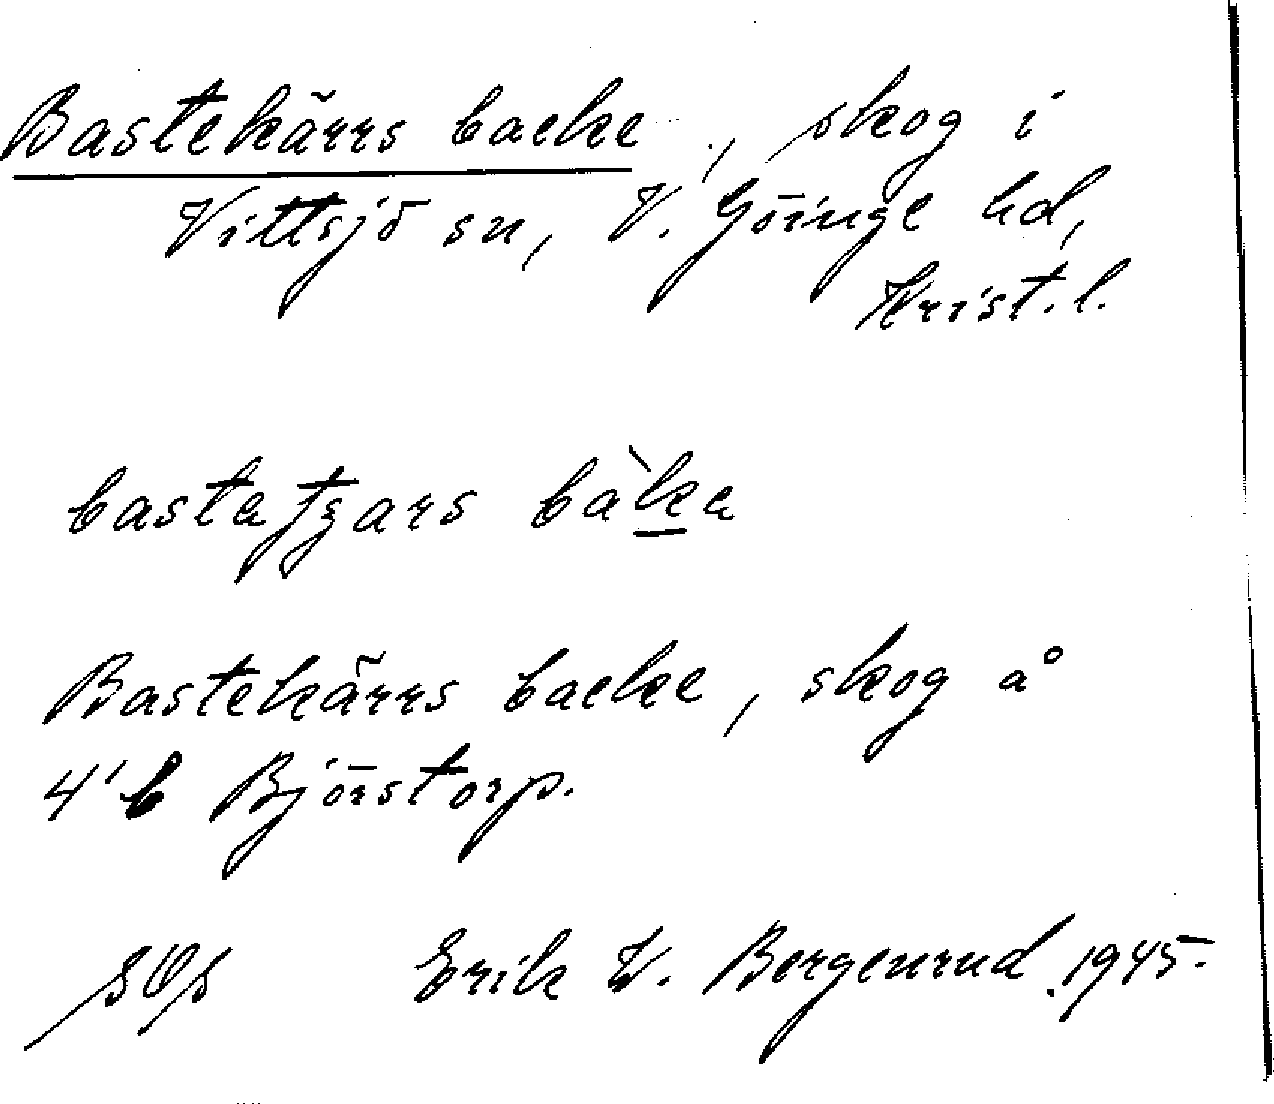 Bastekärrs backe, skog i
Vittsjö sn, V. Göinge hd,
Krist. l.
bastaʃʒars bàka
Bastekärrs backe, skog å
4'b Björstorp.
Erik W. Bergenrud. 1945.